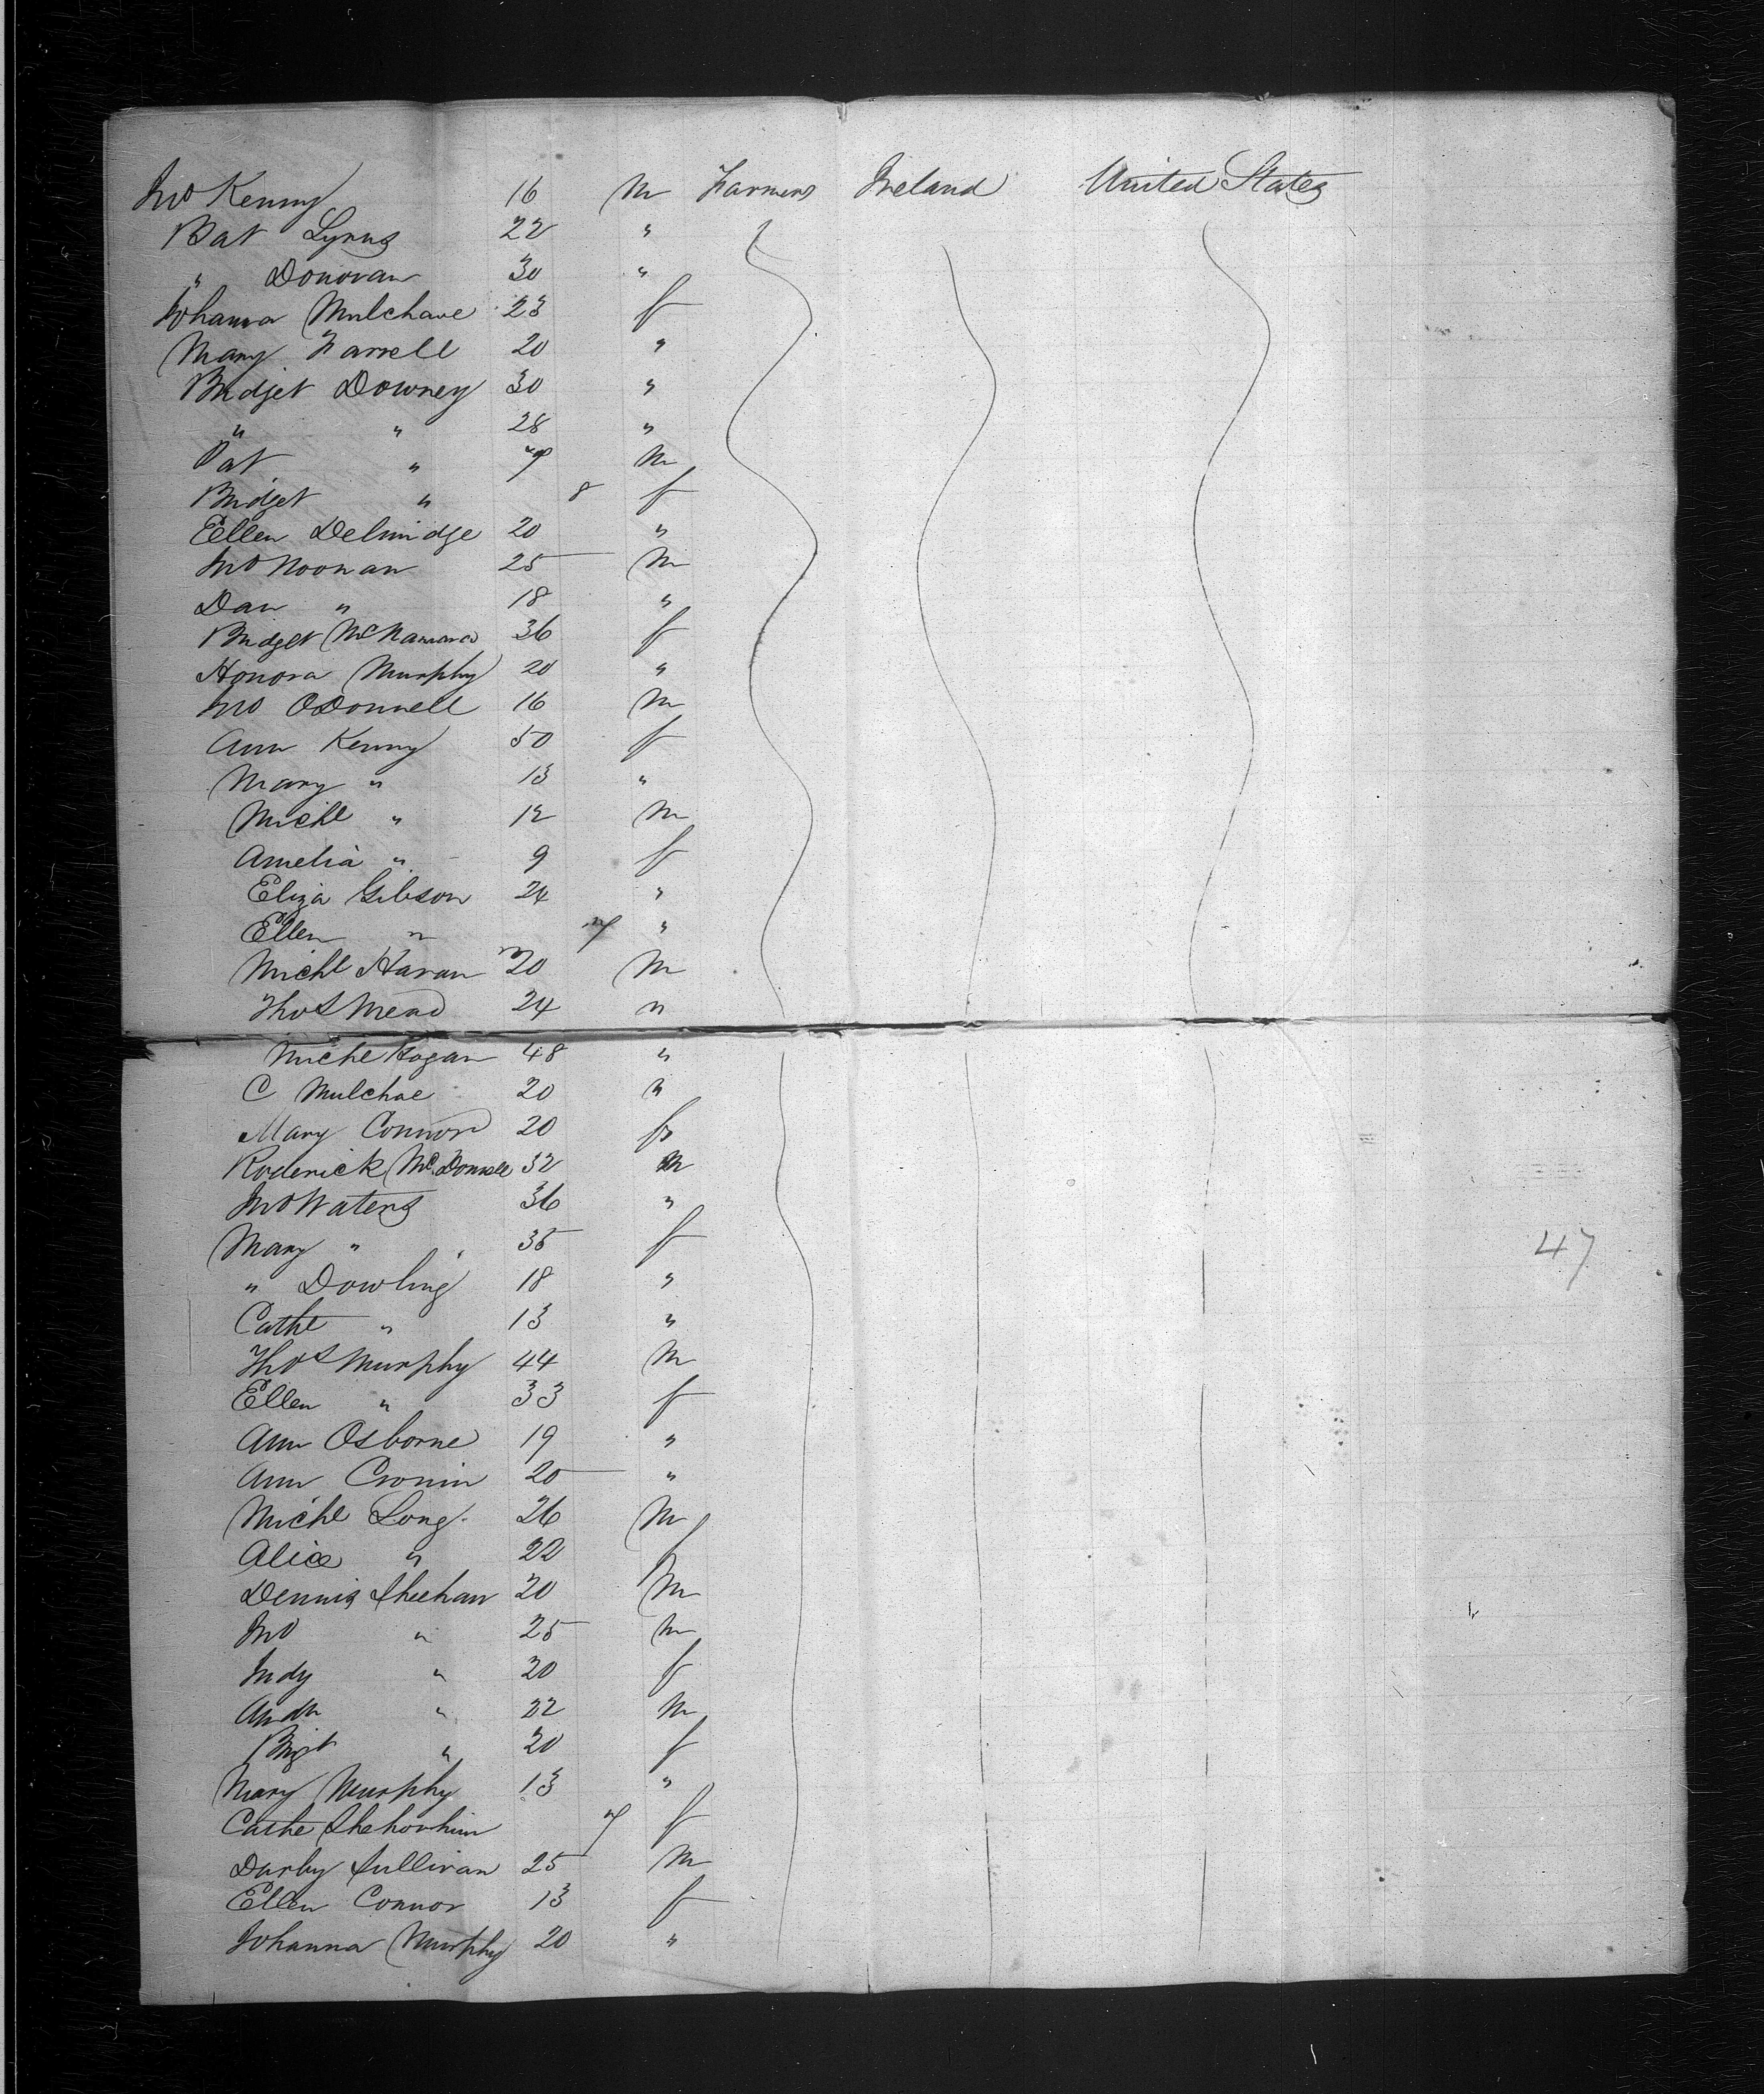 Jno Kenny 16 M Farmers Ireland United States
Bat Lyons 22 "
" Donovan 30 "
Johanna Mulchave 23 f
Mary Farrell 20 "
Bridget Downey 30 "
" " 28 "
Pat " M
Bridget " 8 f
Ellen Delmidge 20 "
Jno Noonan 25 M
Dan " 18 "
Bridget McNamara 36 f
Honora Murphy 20 "
Jno ODonnell 16 M
Ann Kenny 50 f
Mary " 13 "
Michl " 12 M
Amelia " 9 f
Eliza Gibson 24 "
Ellen " "
Michl Haran 20 M
Thos Mead 24 "
Michl Hogan 48 "
C Mulchae 20 "
Mary Connor 20 f
Roderick McDonnell 32 M
Jno Waters 36 "
Mary " 35 f
" Dowling 18 "
Cathe " 13 "
Thos Murphy 44 M
Ellen " 33 f
Ann Osborne 19 "
Ann Cronin 20 "
Michl Long 26 M
Alice " 22 f
Dennis Sheehan 20 M
Jno " 25 M
Judy " 20 f
Andw " 22 M
Brigt " 20 f
Mary Murphy 13 "
Cathe f
Darby Sullivan 25 M
Ellen Connor 13 f
Johanna Murphy 20 "
47